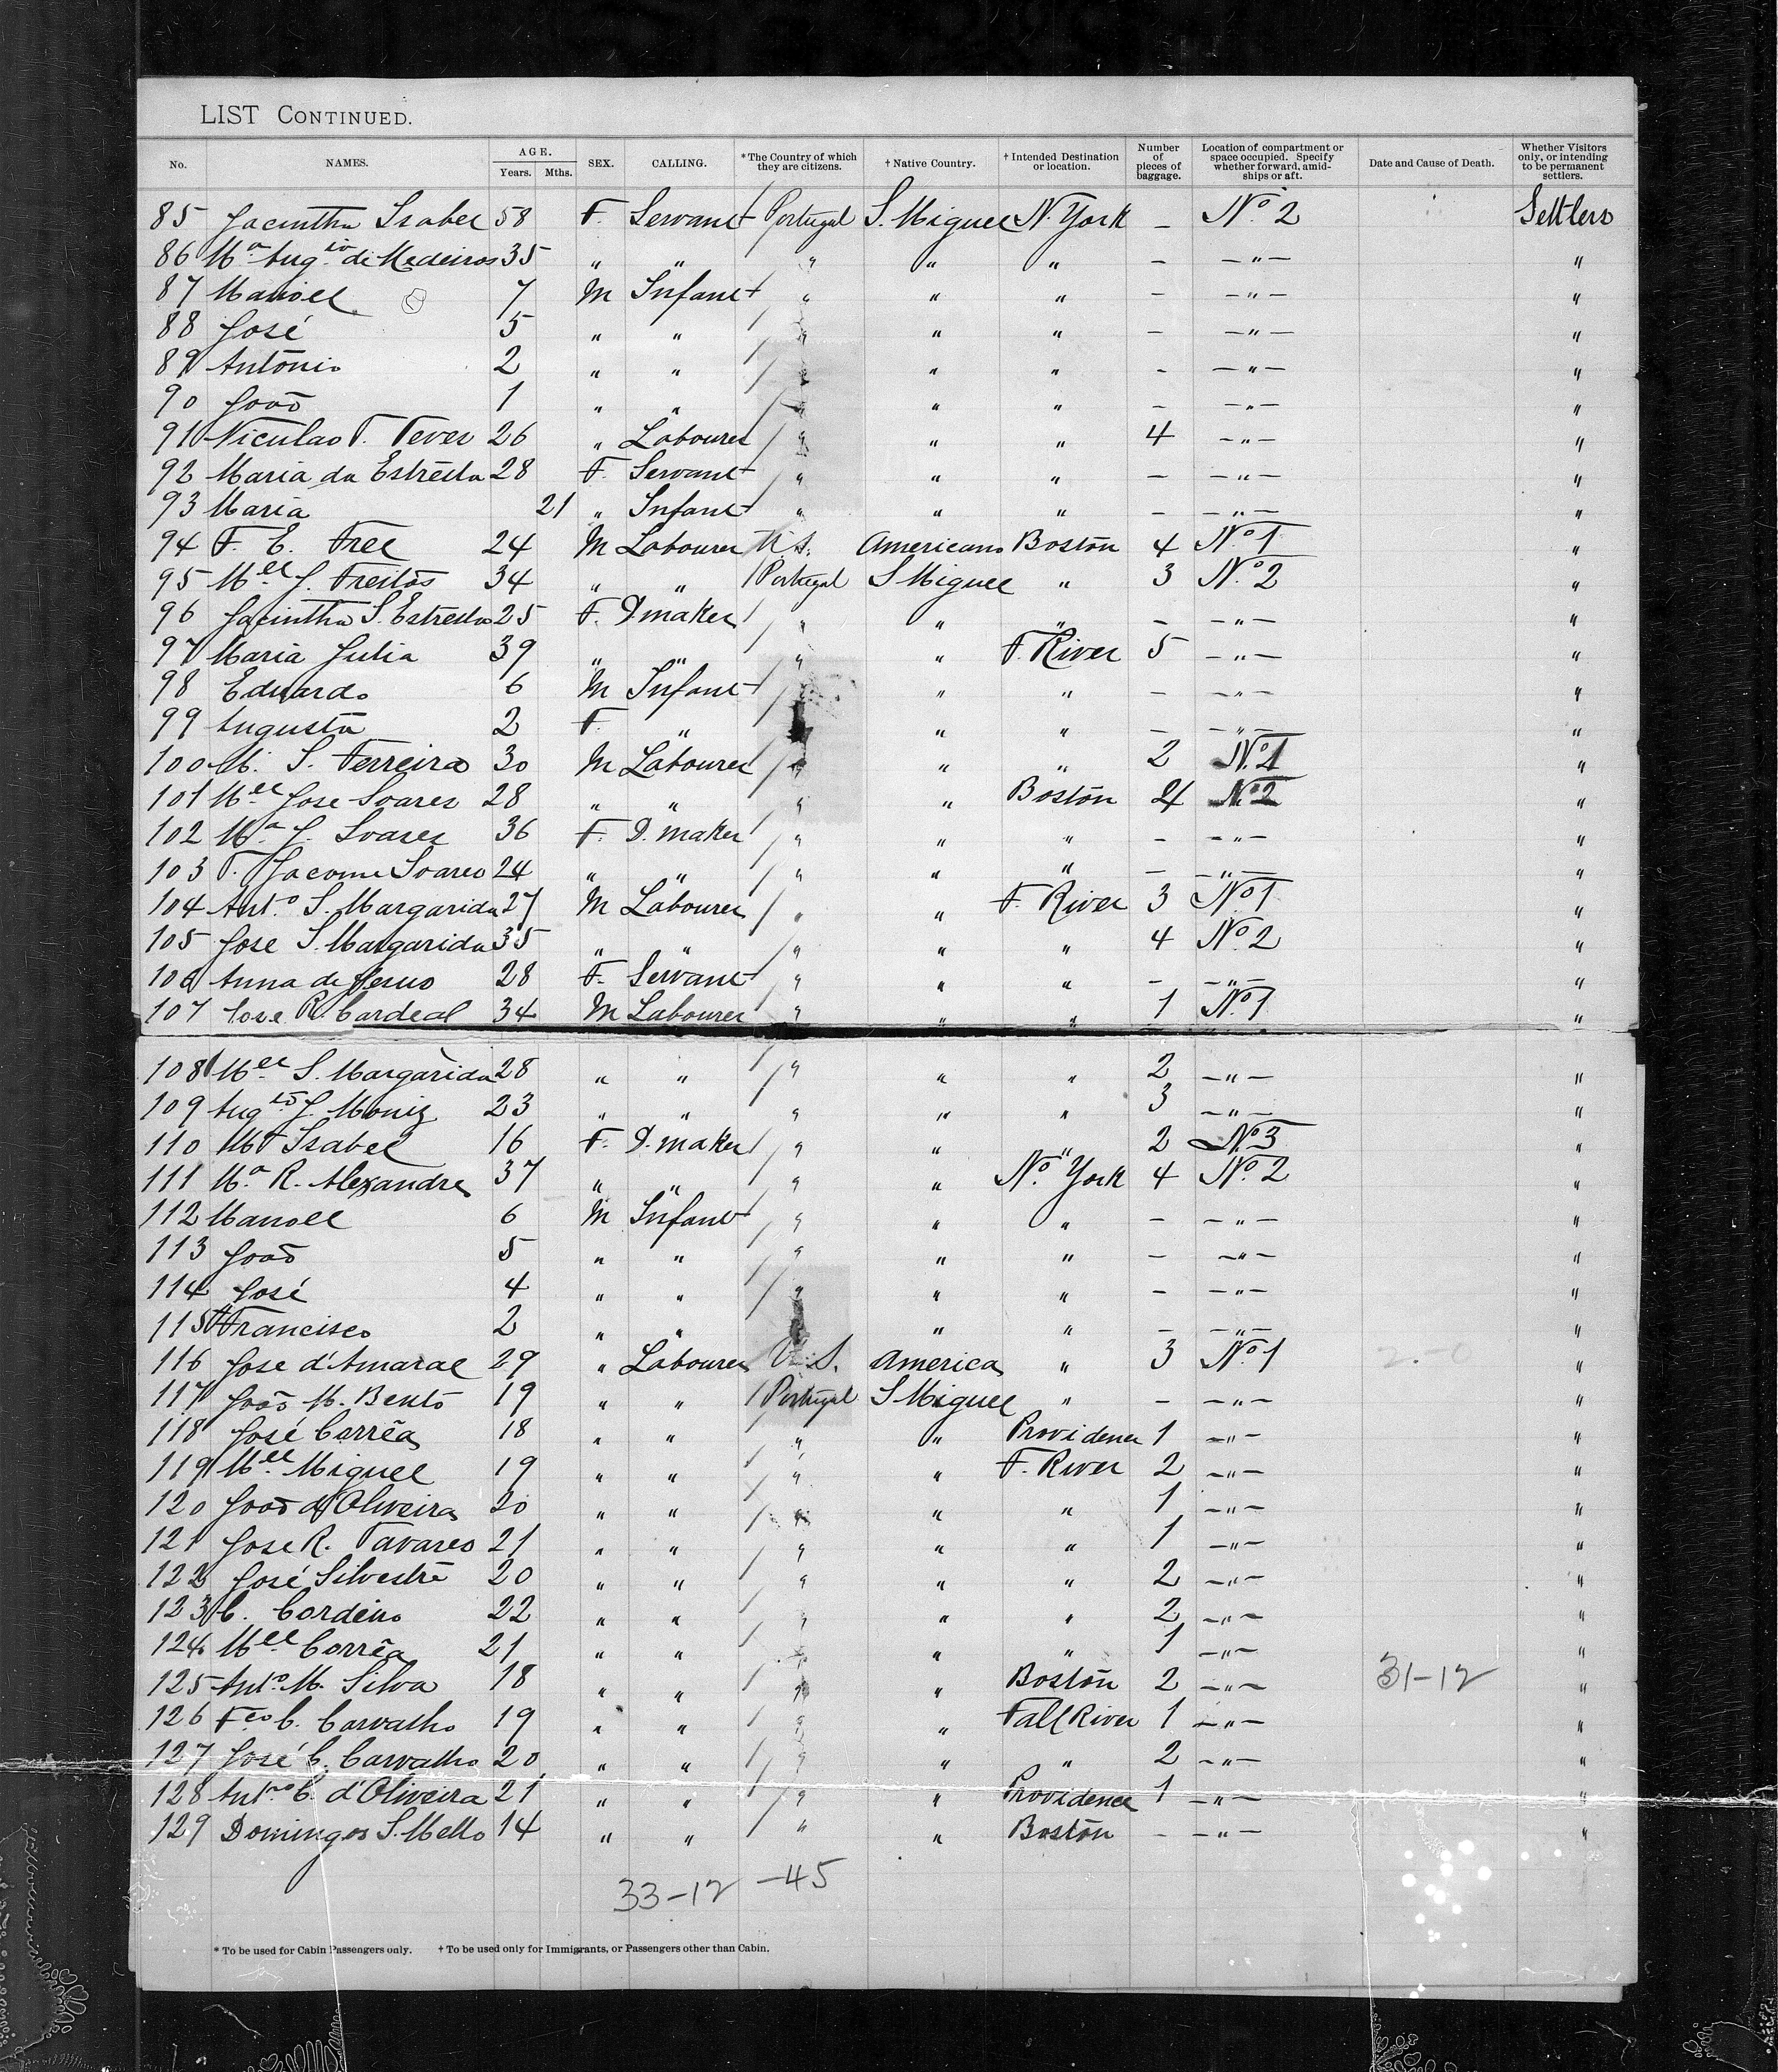 LIST CONTINUED.
No. NAMES. AGE. Years. Mths. SEX. CALLING. *The Country of which they are citizens. † Native Country. † Intended Destination or location. Number of pieces of baggage. Location of compartment or space occupied. Specify whether forward, amidships or aft. Date and Cause of Death. Whether Visitors only, or intending to be permanent settlers.
85 Jacintha Isabel 58 F. Servant Portugal S. Miguel N. York — Nº 2 Settlers
86 Mª Augta de Medeiros 35 " " " " " — —"— "
87 Manoel 7 M Infant " " " — —"— "
88 José 5 " " " " " — —"— "
89 António 2 " " " " " — —"— "
90 João 1 " " " " " — —"— "
91 Niculao T. Tever 26 " Labourer " " " 4 —"— "
92 Maria da Estrella 28 F. Servant " " " — —"— "
93 Maria 21 " Infant " " " — —"— "
94 F. E. Free 24 M Labourer U.S. Americano Boston 4 Nº 1 "
95 Mel J. Freitas 34 " " Portugal S Miguel " 3 Nº 2 "
96 Jacintha S. Estrella 25 F. D.maker " " " — —"— "
97 Maria Julia 39 " " " " F. River 5 —"— "
98 Eduardo 6 M Infant " " " — —"— "
99 Augusta 2 F. " " " — —"— "
100 M. S. Ferreira 30 M Labourer " " " 2 Nº 1 "
101 Mel Jose Soares 28 " " " " Boston 4 Nº 2 "
102 Mª J. Soares 36 F. D. maker " " " — —"— "
103 T. Jacome Soares 24 " " " " " — —"— "
104 Antº S. Margarida 27 M Labourer " " F. River 3 Nº 1 "
105 Jose S. Margarida 35 " " " " " 4 Nº 2 "
106 Anna de Jesus 28 F. Servant " " " — —"— "
107 Jose R. Cardeal 34 M Labourer " " " 1 Nº 1 "
108 Mel S. Margarida 28 " " " " " 2 —"— "
109 Augto J. Moniz 23 " " " " " 3 —"— "
110 Mª Isabel 16 F. D. maker " " " 2 Nº 3 "
111 Mª R. Alexandre 37 " " " " Nº York 4 Nº 2 "
112 Manoel 6 M Infant " " " — —"— "
113 João 5 " " " " " — —"— "
114 José 4 " " " " " — —"— "
115 Francisco 2 " " " " — —"— "
116 Jose d'Amaral 29 " Labourer U.S. America " 3 Nº 1 "
117 João M. Bento 19 " " Portugal S Miguel " — —"— "
118 José Corrêa 18 " " " " Providence 1 —"— "
119 Mel Miguel 19 " " " " F. River 2 —"— "
120 João d'Oliveira 20 " " " " " 1 —"— "
121 Jose R. Tavares 21 " " " " " 1 —"— "
122 José Silvestre 20 " " " " " 2 —"— "
123 C. Cordeiro 22 " " " " " 2 —"— "
124 Mel Corrêa 21 " " " " " 1 —"— "
125 Antº M. Silva 18 " " " " Boston 2 —"— 31-12 "
126 Fco C. Carvalho 19 " " " " Fall River 1 —"— "
127 José C. Carvalho 20 " " " " " 2 —"— "
128 Antº C. d'Oliveira 21 " " " " Providence 1 —"— "
129 Domingos S. Mello 14 " " " " Boston — —"— "
33-12 -45
* To be used for Cabin Passengers only. † To be used only for Immigrants, or Passengers other than Cabin.